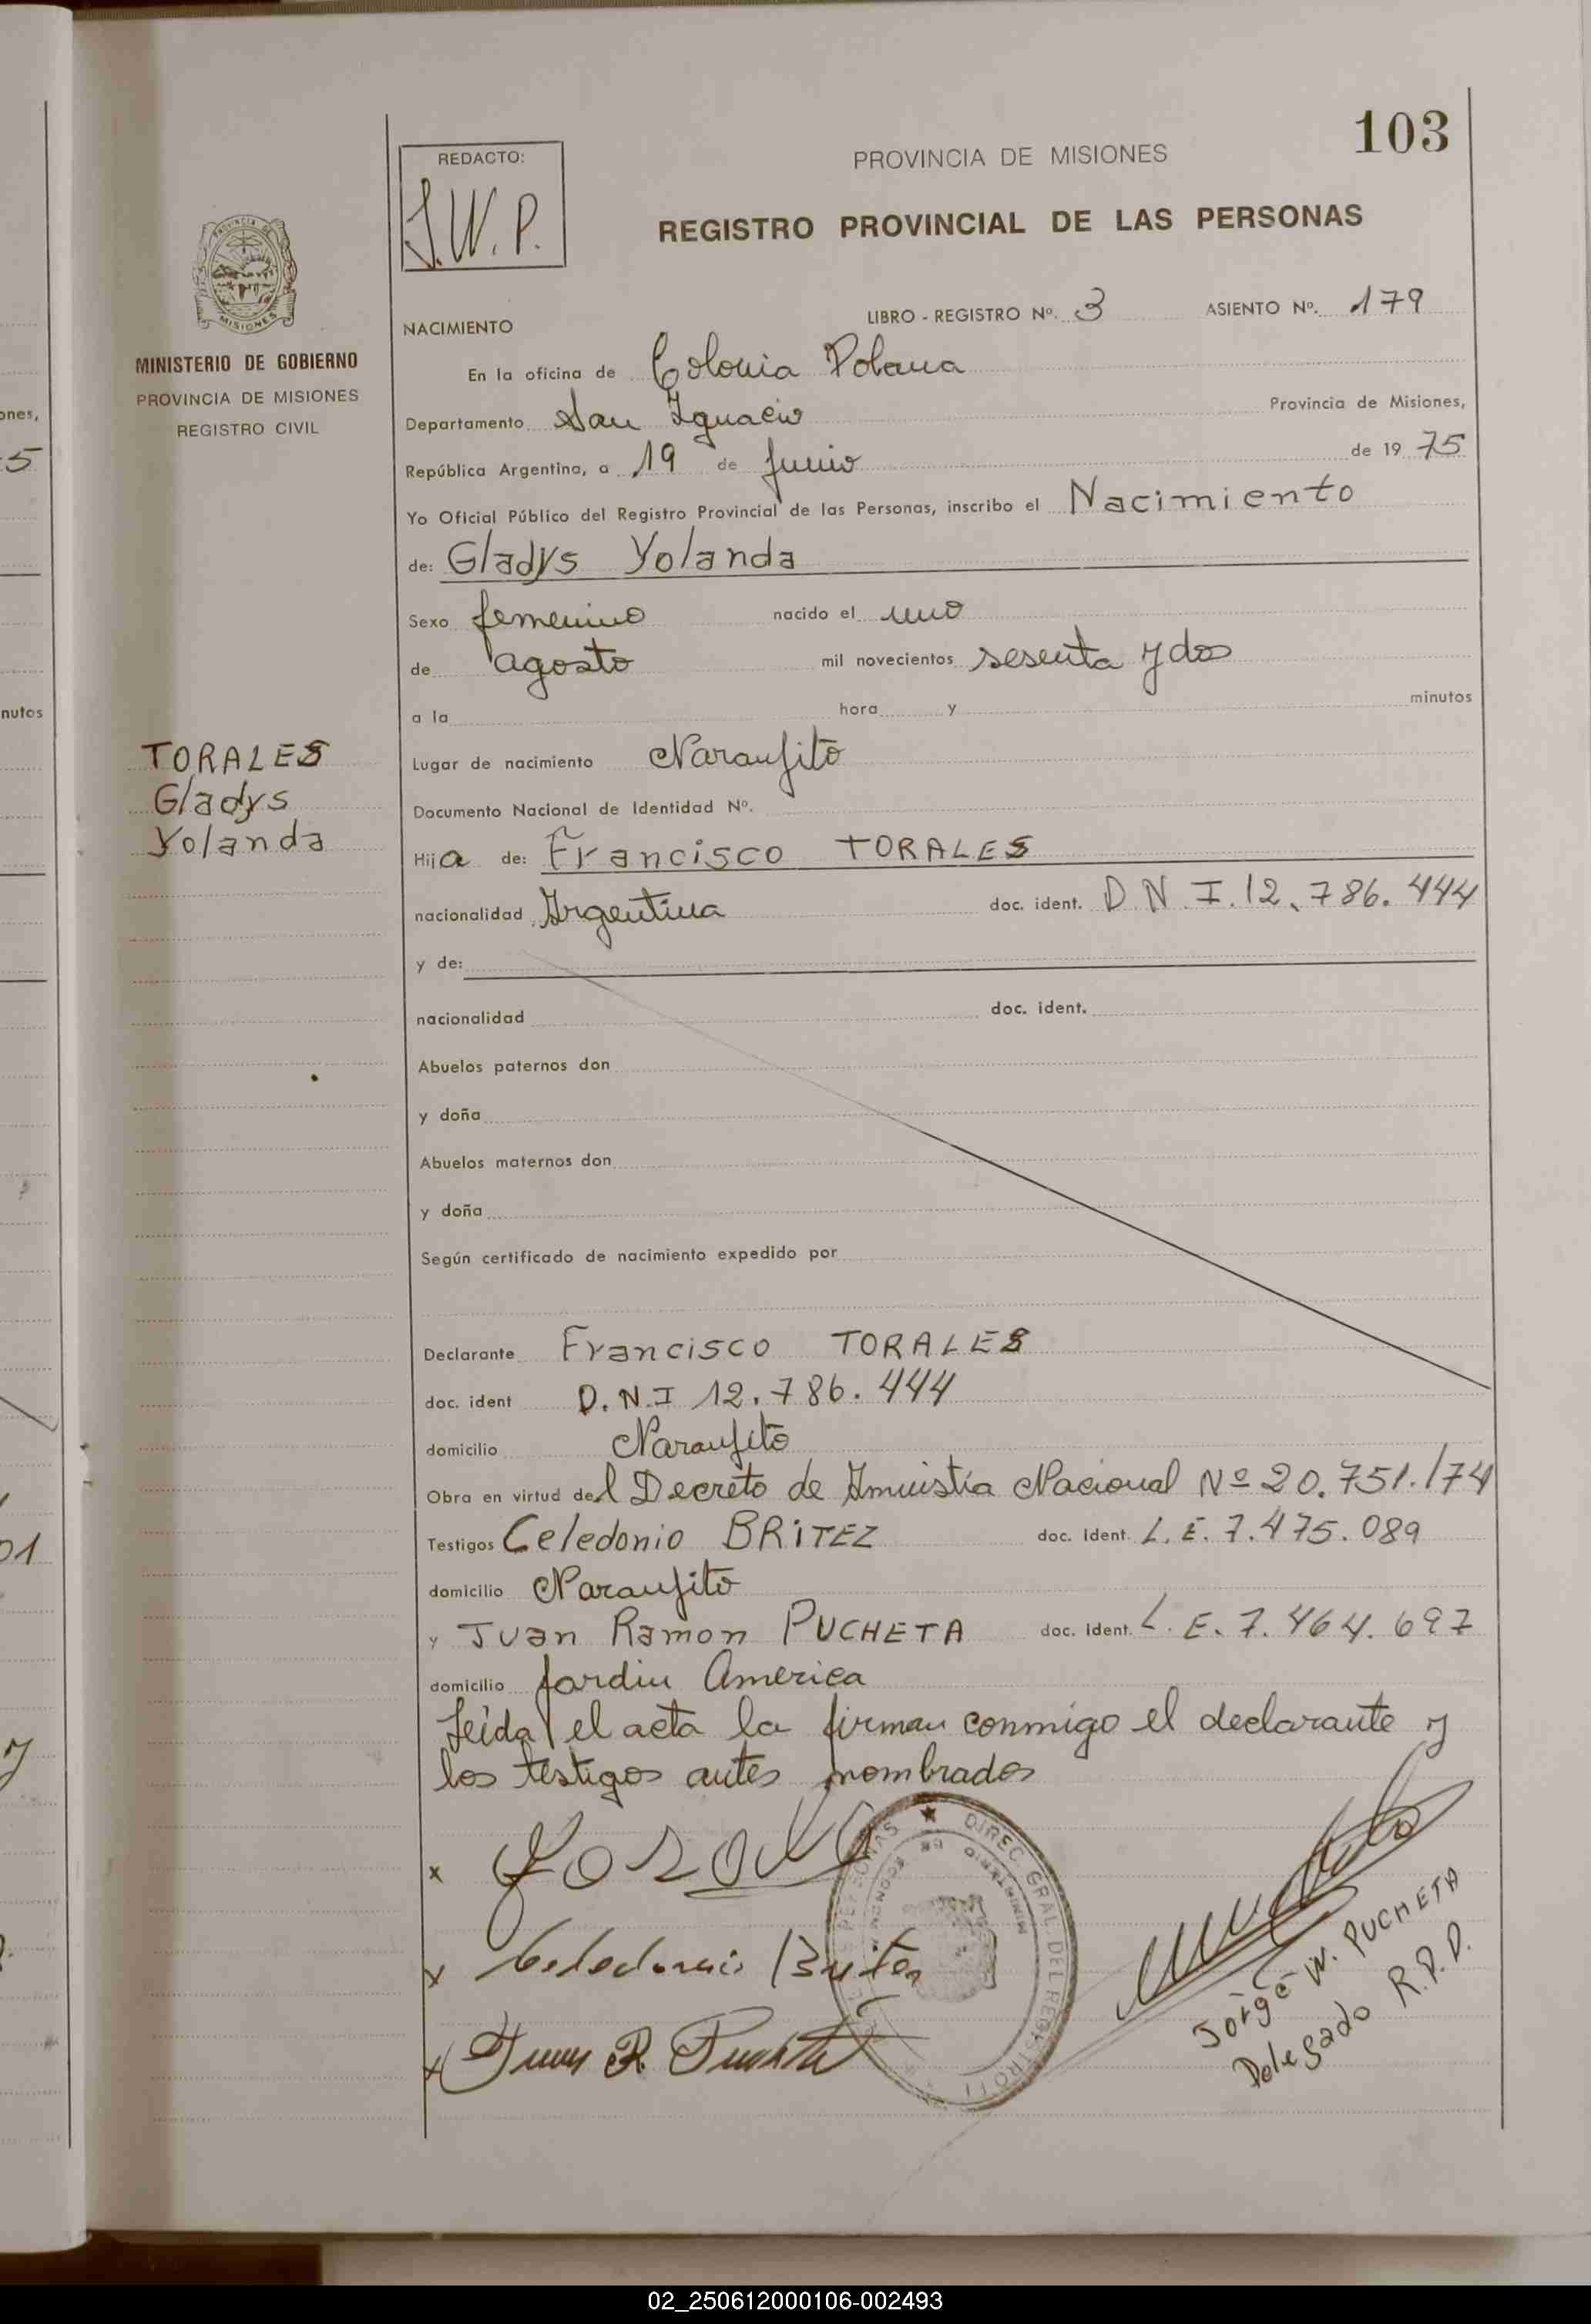 103
REDACTO:
J.W.P.
PROVINCIA DE MISIONES
REGISTRO PROVINCIAL DE LAS PERSONAS
MISIONES
MINISTERIO DE GOBIERNO
PROVINCIA DE MISIONES
REGISTRO CIVIL
NACIMIENTO
LIBRO - REGISTRO Nº. 3 ASIENTO Nº. 179
En la oficina de Colonia Polana
Departamento San Ignacio Provincia de Misiones,
República Argentina, a 19 de Junio de 1975
Yo Oficial Público del Registro Provincial de las Personas, inscribo el Nacimiento
de: Gladys Yolanda
Sexo femenino nacido el uno
de agosto mil novecientos sesenta y dos
a la hora y minutos
TORALES
Gladys
Yolanda
Lugar de nacimiento Naranjito
Documento Nacional de Identidad Nº.
Hija de: Francisco TORALES
nacionalidad Argentina doc. ident. D.N.I. 12.786.444
y de:
nacionalidad doc. ident.
Abuelos paternos don
y doña
Abuelos maternos don
y doña
Según certificado de nacimiento expedido por
Declarante Francisco TORALES
doc. ident D.N.I 12.786.444
domicilio Naranjito
Obra en virtud del Decreto de Amnistía Nacional Nº 20.751./74
Testigos Celedonio BRITEZ doc. ident. L.E. 7.475.089
domicilio Naranjito
y Juan Ramon PUCHETA doc. ident. L.E. 7.464.697
domicilio Jardin America
Leida el acta la firman conmigo el declarante y
los testigos antes nombrados
x
x Celedonio Britez
x Juan R. Pucheta
DIREC. GRAL. DEL REGISTRO
PERSONAS
MINISTERIO DE
Jorge W. PUCHETA
Delegado R.P.P.
02_250612000106-002493